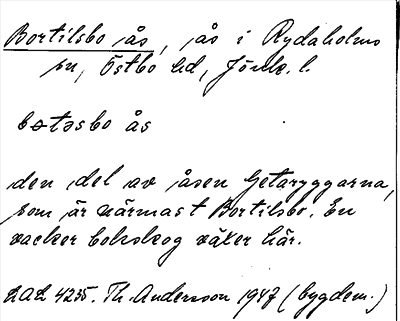 Bortilsbo ås, ås i Rydaholms
sn, Östbo hd, Jönk. l.
botəsbo ås
den del av åsen Getaryggarna,
som är närmast Bortilsbo. En
vacker bokskog växer här.
ULL 4235. Th. Andersson 1947 (bygdem.)